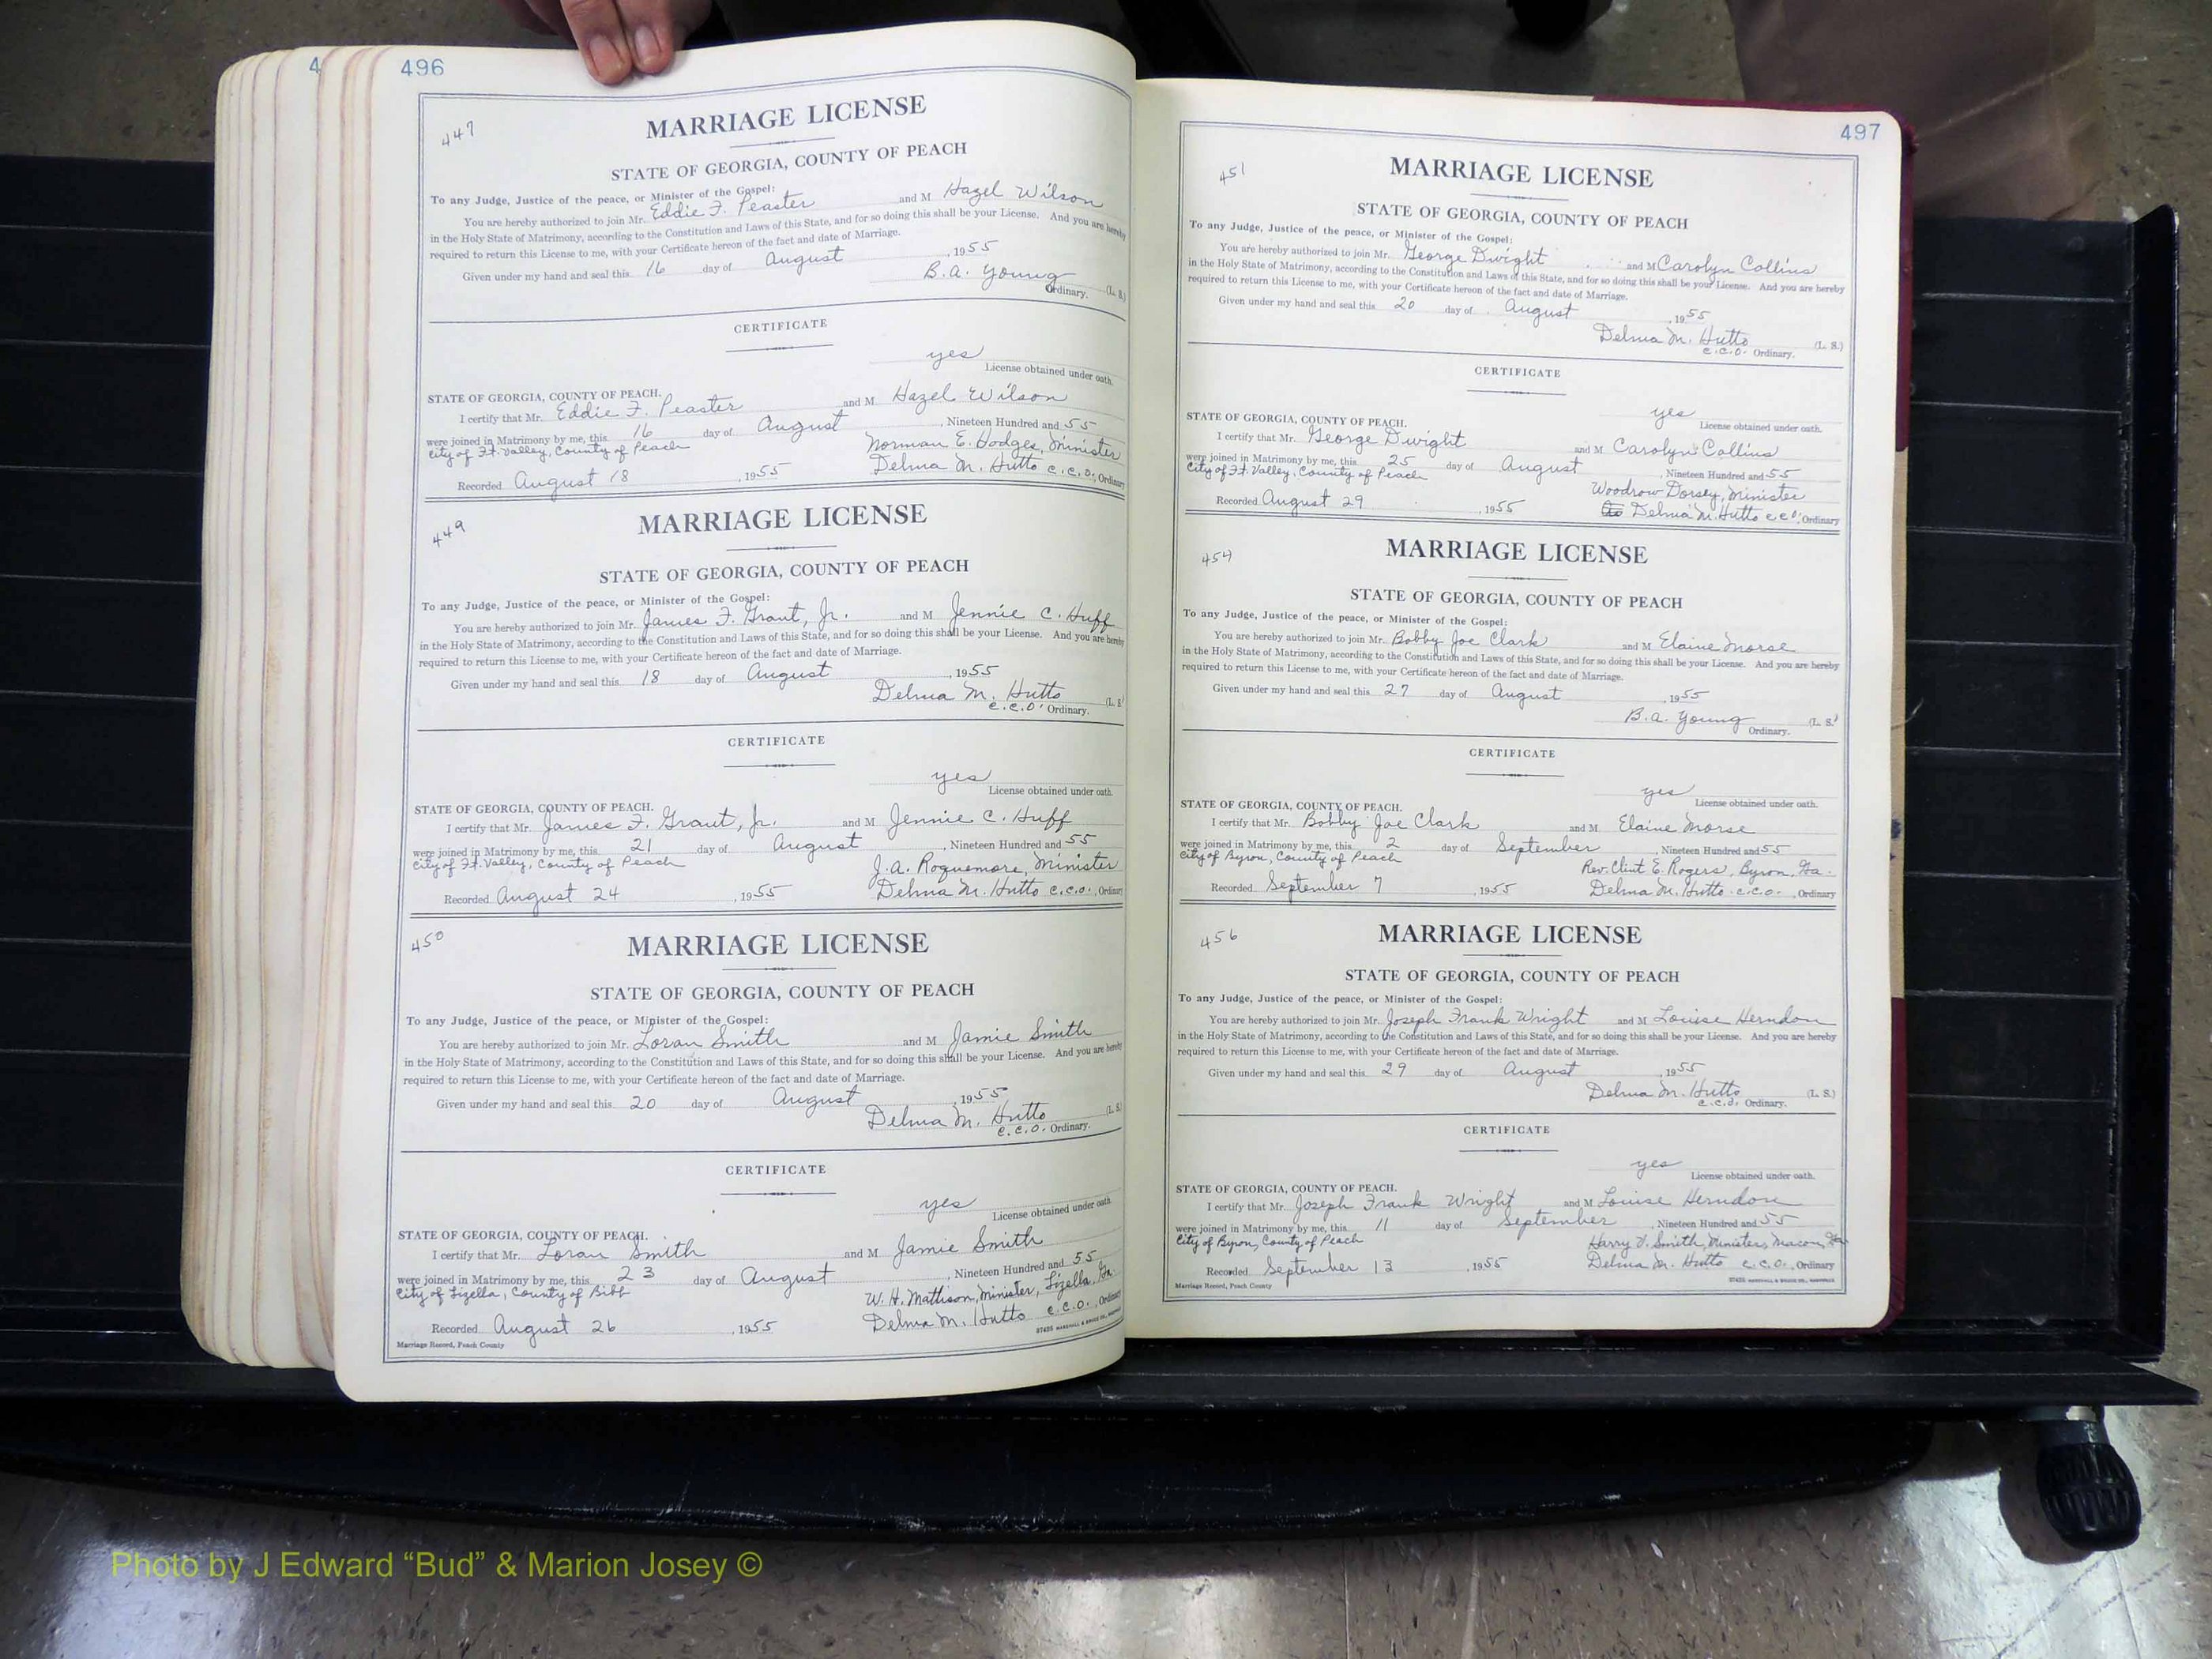 4
496
447
MARRIAGE LICENSE
STATE OF GEORGIA, COUNTY OF PEACH
To any Judge, Justice of the peace, or Minister of the Gospel:
You are hereby authorized to join Mr. Eddie F. Peaster and M Hazel Wilson
in the Holy State of Matrimony, according to the Constitution and Laws of this State, and for so doing this shall be your License. And you are hereby
required to return this License to me, with your Certificate hereon of the fact and date of Marriage.
Given under my hand and seal this 16 day of August, 1955
B. A. Young (L. S.)
Ordinary.
CERTIFICATE
yes
License obtained under oath.
STATE OF GEORGIA, COUNTY OF PEACH.
I certify that Mr. Eddie F. Peaster and M. Hazel Wilson
were joined in Matrimony by me, this 16 day of August, Nineteen Hundred and 55
City of Ft. Valley, County of Peach Norman E. Hodges, Minister
Recorded August 18, 1955 Delma M. Hutto C.C.O., Ordinary
449
MARRIAGE LICENSE
STATE OF GEORGIA, COUNTY OF PEACH
To any Judge, Justice of the peace, or Minister of the Gospel:
You are hereby authorized to join Mr. James F. Grant, Jr. and M Jennie C. Huff
in the Holy State of Matrimony, according to the Constitution and Laws of this State, and for so doing this shall be your License. And you are hereby
required to return this License to me, with your Certificate hereon of the fact and date of Marriage.
Given under my hand and seal this 18 day of August, 1955
Delma M. Hutto (L. S.
C.C.O. Ordinary.
CERTIFICATE
yes
License obtained under oath.
STATE OF GEORGIA, COUNTY OF PEACH.
I certify that Mr. James F. Grant, Jr. and M Jennie C. Huff
were joined in Matrimony by me, this 21 day of August, Nineteen Hundred and 55
City of Ft. Valley, County of Peach J. A. Roquemore, Minister
Recorded August 24, 1955 Delma M. Hutto C.C.O., Ordinary
450
MARRIAGE LICENSE
STATE OF GEORGIA, COUNTY OF PEACH
To any Judge, Justice of the peace, or Minister of the Gospel:
You are hereby authorized to join Mr. Loran Smith and M Jamie Smith
in the Holy State of Matrimony, according to the Constitution and Laws of this State, and for so doing this shall be your License. And you are hereby
required to return this License to me, with your Certificate hereon of the fact and date of Marriage.
Given under my hand and seal this 20 day of August, 1955
Delma M. Hutto (L. S.)
C.C.O. Ordinary.
CERTIFICATE
yes
License obtained under oath.
STATE OF GEORGIA, COUNTY OF PEACH.
I certify that Mr. Loran Smith and M Jamie Smith
were joined in Matrimony by me, this 23 day of August, Nineteen Hundred and 55
City of Lizella, County of Bibb W. H. Mattison, Minister, Lizella, Ga.
Recorded August 26, 1955 Delma M. Hutto C.C.O., Ordinary
Marriage Record, Peach County
497
451
MARRIAGE LICENSE
STATE OF GEORGIA, COUNTY OF PEACH
To any Judge, Justice of the peace, or Minister of the Gospel:
You are hereby authorized to join Mr. George Dwight and M Carolyn Collins
in the Holy State of Matrimony, according to the Constitution and Laws of this State, and for so doing this shall be your License. And you are hereby
required to return this License to me, with your Certificate hereon of the fact and date of Marriage.
Given under my hand and seal this 20 day of August, 1955
Delma M. Hutto (L. S.)
C.C.O. Ordinary.
CERTIFICATE
yes
License obtained under oath.
STATE OF GEORGIA, COUNTY OF PEACH.
I certify that Mr. George Dwight and M Carolyn Collins
were joined in Matrimony by me, this 25 day of August, Nineteen Hundred and 55
City of Ft. Valley, County of Peach Woodrow Dorsey, Minister
Recorded August 29, 1955 Delma M. Hutto C.C.O., Ordinary
454
MARRIAGE LICENSE
STATE OF GEORGIA, COUNTY OF PEACH
To any Judge, Justice of the peace, or Minister of the Gospel:
You are hereby authorized to join Mr. Bobby Joe Clark and M Elaine Morse
in the Holy State of Matrimony, according to the Constitution and Laws of this State, and for so doing this shall be your License. And you are hereby
required to return this License to me, with your Certificate hereon of the fact and date of Marriage.
Given under my hand and seal this 27 day of August, 1955
B. A. Young (L. S.)
Ordinary.
CERTIFICATE
yes
License obtained under oath.
STATE OF GEORGIA, COUNTY OF PEACH.
I certify that Mr. Bobby Joe Clark and M Elaine Morse
were joined in Matrimony by me, this 2 day of September, Nineteen Hundred and 55
City of Byron, County of Peach Rev. Clint E. Rogers, Byron, Ga.
Recorded September 7, 1955 Delma M. Hutto C.C.O., Ordinary
456
MARRIAGE LICENSE
STATE OF GEORGIA, COUNTY OF PEACH
To any Judge, Justice of the peace, or Minister of the Gospel:
You are hereby authorized to join Mr. Joseph Frank Wright and M Louise Herndon
in the Holy State of Matrimony, according to the Constitution and Laws of this State, and for so doing this shall be your License. And you are hereby
required to return this License to me, with your Certificate hereon of the fact and date of Marriage.
Given under my hand and seal this 29 day of August, 1955
Delma M. Hutto (L. S.)
C.C.O. Ordinary.
CERTIFICATE
yes
License obtained under oath.
STATE OF GEORGIA, COUNTY OF PEACH.
I certify that Mr. Joseph Frank Wright and M Louise Herndon
were joined in Matrimony by me, this 11 day of September, Nineteen Hundred and 55
City of Byron, County of Peach Harry V. Smith, Minister, Macon, Ga
Recorded September 13, 1955 Delma M. Hutto C.C.O., Ordinary
Marriage Record, Peach County
Photo by J Edward “Bud” & Marion Josey ©